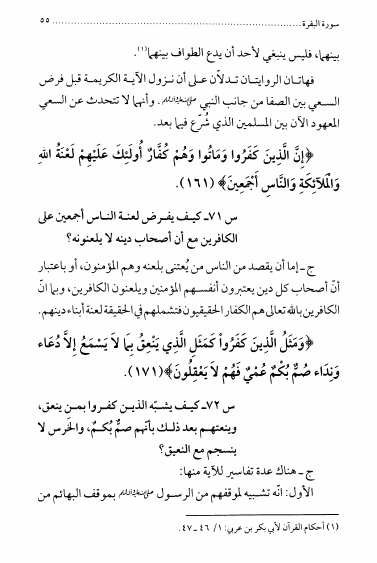 سورة البقرة ........ ٥٥
بينهما، فليس ينبغي لأحد أن يدع الطواف بينهما(١).
فهاتان الروايتان تدلاّن على أن نزول الآية الكريمة قبل فرض
السعي بين الصفا من جانب النبي ﷺ. وأنهما لا تتحدث عن السعي
المعهود الآن بين المسلمين الذي شُرّع فيما بعد.
﴿إِنَّ الَّذِينَ كَفَرُوا وَمَاتُوا وَهُمْ كُفَّارٌ أُولَئِكَ عَلَيْهِمْ لَعْنَةُ اللهِ
وَالْمَلَآئِكَةِ وَالنَّاسِ أَجْمَعِينَ﴾ (١٦١).
س ٧١ـ كيف يفرض لعنة الناس أجمعين على
الكافرين مع أن أصحاب دينه لا يلعنونه؟
ج ـ إما أن يقصد من الناس من يُعتنى بلعنه وهم المؤمنون، أو باعتبار
أنّ أصحاب كل دين يعتبرون أنفسهم المؤمنين ويلعنون الكافرين، وبما انّ
الكافرين بالله تعالى هم الكفار الحقيقيون فتشملهم في الحقيقة لعنة أبناء دينهم.
﴿وَمَثَلُ الَّذِينَ كَفَرُواْ كَمَثَلِ الَّذِي يَنْعِقُ بِمَا لاَ يَسْمَعُ إِلاَّ دُعَاء
وَنِدَاء صُمٌّ بُكْمٌ عُمْيٌ فَهُمْ لاَ يَعْقِلُونَ﴾ (١٧١).
س ٧٢ـ كيف يشبّه الذين كفروا بمن ينعق،
وينعتهم بعد ذلك بأنّهم صمٌّ بُكمٌ، والخَرس لا
ينسجم مع النعيق؟
ج ـ هناك عدة تفاسير للآية منها:
الأول: انّه تشبيه لموقفهم من الرسول ﷺ بموقف البهائم من
(١) أحكام القرآن لأبي بكر بن عربي: ١/ ٤٦ـ ٤٧.